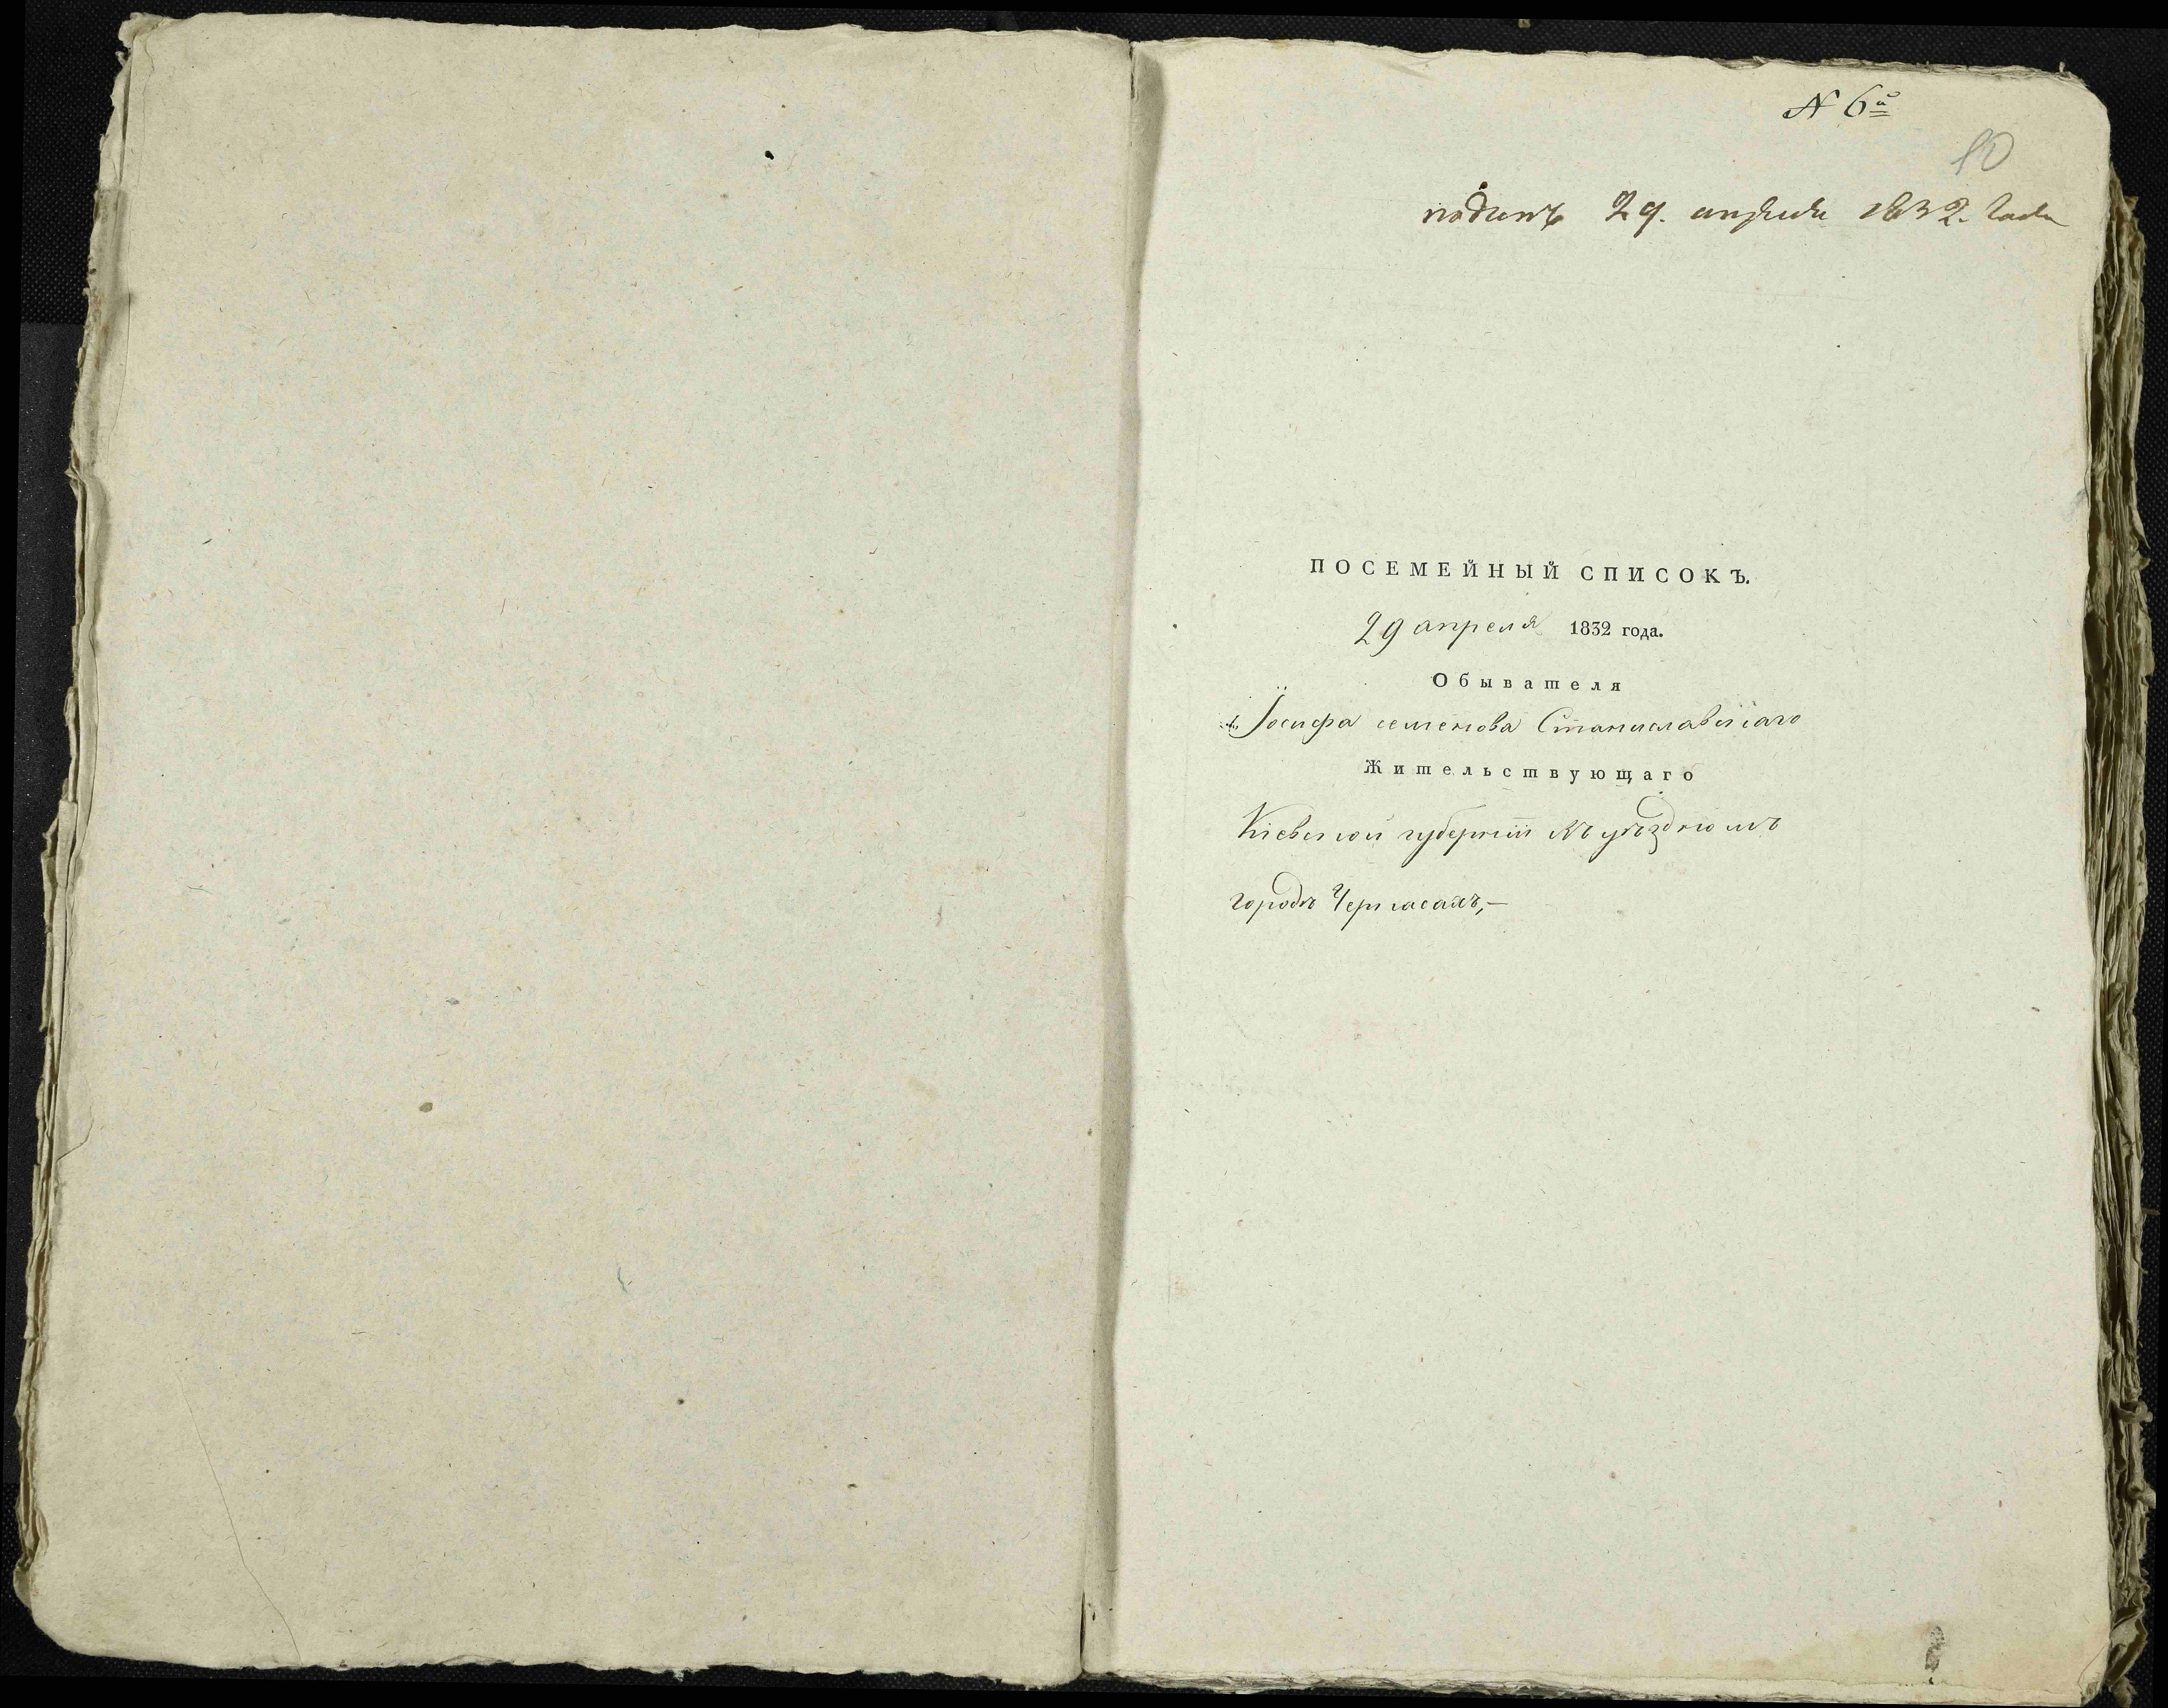 N 6й
10
поданъ 29. апреля 1832. года
ПОСЕМЕЙНЫЙ СПИСОКЪ.
29 апреля 1832 года.
Обывателя
Іосифа семенова Станиславскаго
Жительствующаго
Кіевской губерніи въ уѣздномъ
городѣ Черкасахъ,—